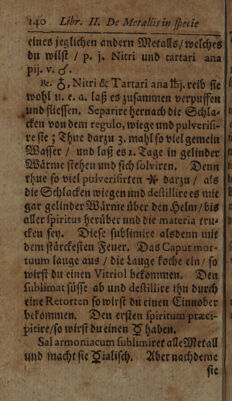 140 Libr. II. De Metallis in specie
eines jeglichen andern Metalls / welches
du wilst / p. j. Nitri und tartari ana
pij. v. ♂.
℞. ♁, Nitri & Tartari ana ℔j. reib sie
wohl u. e. a. laß es zusammen verpuffen
und fliessen. Separire hernach die Schla-
cken von dem regulo, wiege und pulverisi-
re sie; Thue darzu 3. mahl so viel gemein
Wasser / und laß es 2. Tage in gelinder
Wärme stehen und sich solviren. Denn
thue so viel pulverisirten ✶ darzu / als
die Schlacken wiegen und destillire es mit
gar gelinder Wärme über den Helm / bis
aller spiritus herüber und die materia tru-
cken sey. Diese sublimire alsdenn mit
dem stärckesten Feuer. Das Caput mor-
tuum lauge aus / die Lauge koche ein / so
wirst du einen Vitriol bekommen. Den
sublimat süsse ab und destillire ihn durch
eine Retorten so wirst du einen Cinnober
bekommen. Den ersten spiritum præci-
pitire / so wirst du einen ☿ haben.
Sal armoniacum sublimiret alle Metall
und macht sie ☿ialisch. Aber nachdeme
sie